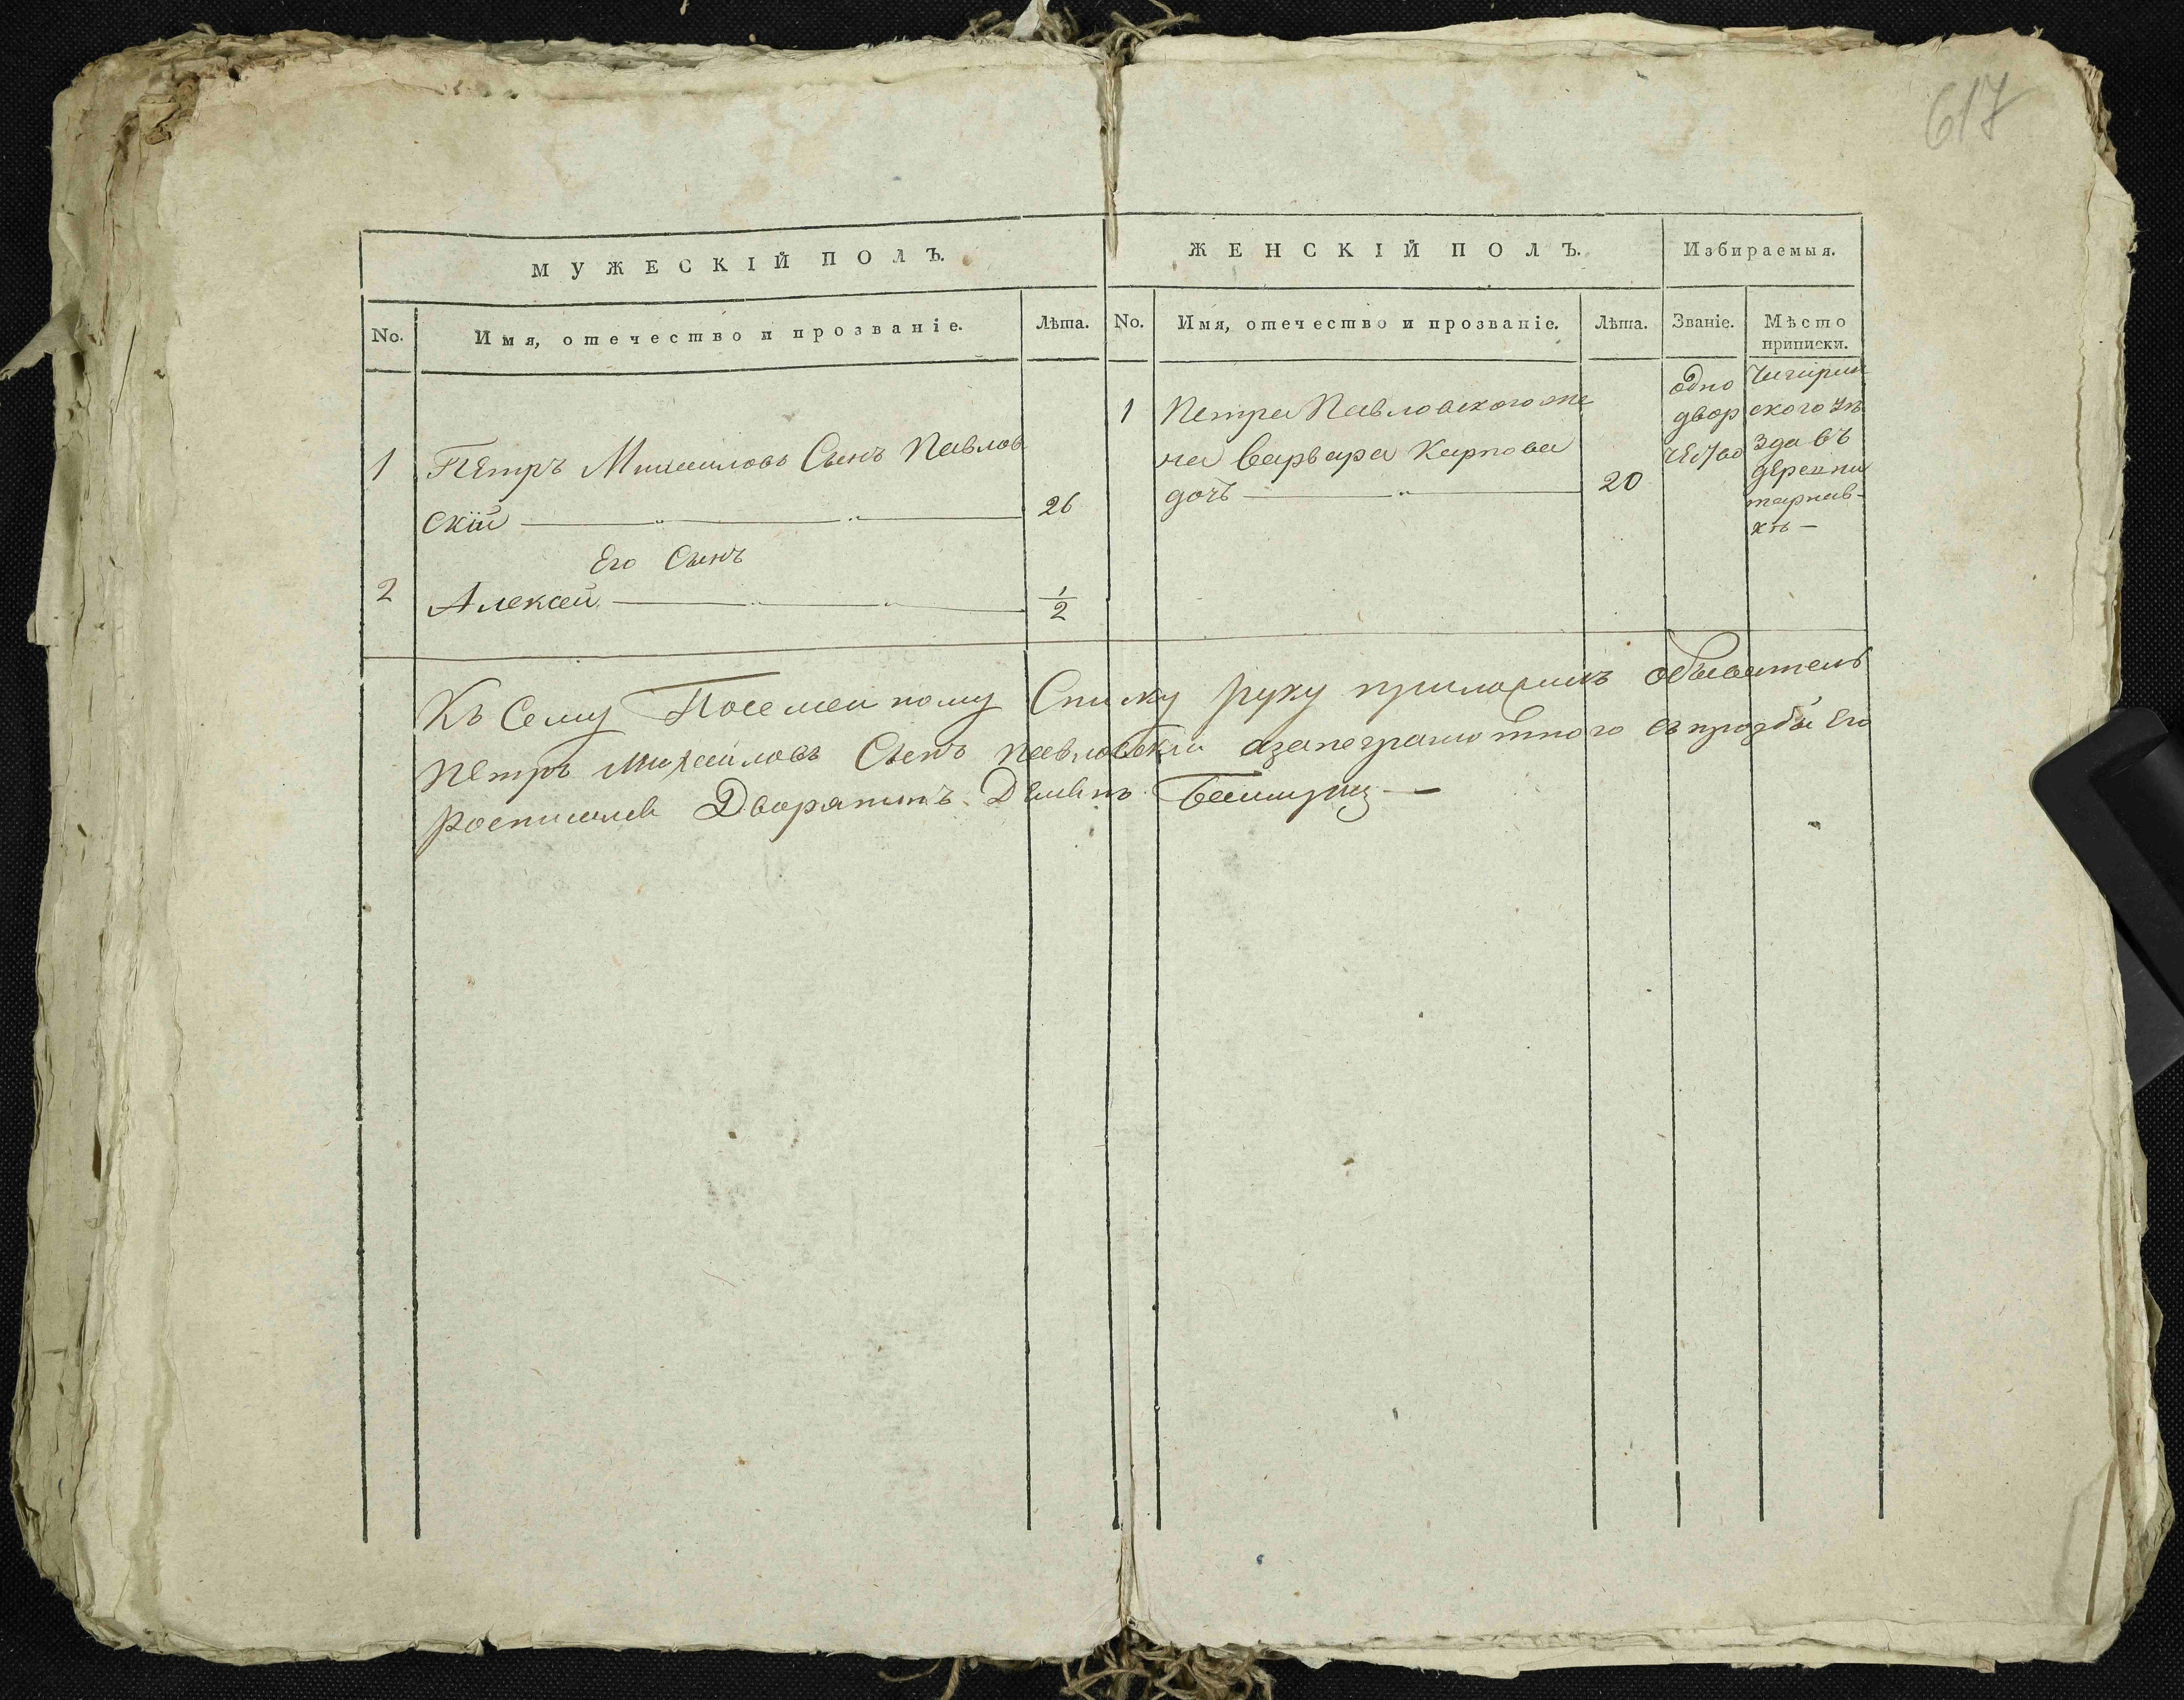 617
МУЖЕСКІЙ ПОЛЪ.
ЖЕНСКІЙ ПОЛЪ.
Избираемыя.
No.
Имя, отечество и прозваніе.
Лѣта.
No.
Имя, отечество и прозваніе.
Лѣта.
Званіе.
Мѣсто
приписки.
1
Петръ Михаиловъ Сынъ Павлов
скій
26
Его Сынъ
2
Алексей
1/2
1
Петра Павловского же
на Варвара Карпова
дочъ
20
одно
двор
Чигирин
ского уѣ
зда въ
деревни
тарнав-
кѣ —
Къ Сему Посемейному Списку руку приложилъ обыватель
Петръ Михайловъ Сынъ Павловскій азанеграмотного съ прозбы Его
Росписался Дворянинъ